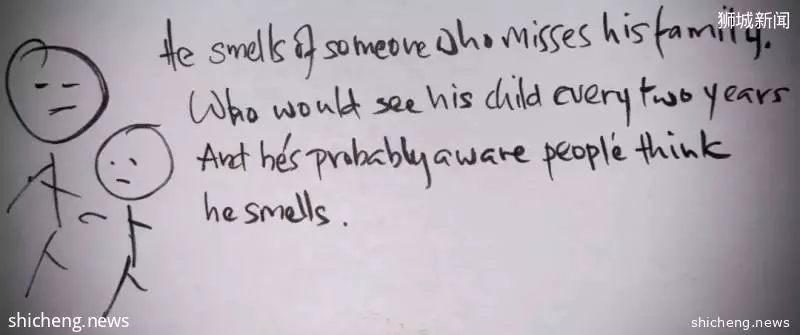 狮城新闻
He smells of someone who misses his family.
Who would see his child every two years
And he's probably aware people think
he smells.
shicheng.news
shicheng.news